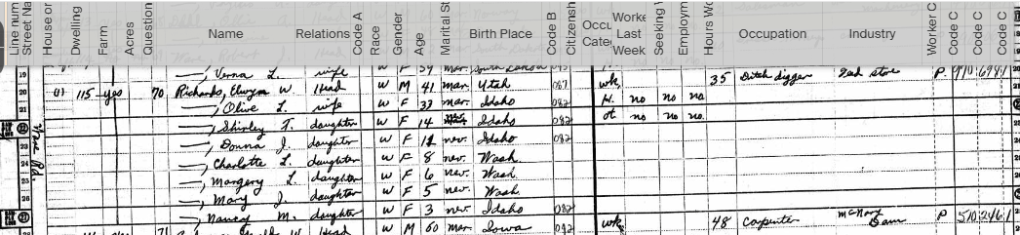 Line num Street Na House or Dwelling Farm Acres Question Name Relations Code A Race Gender Age Marital St Birth Place Code B Citizenshi Occu Cate Worke Last Week Seeking Employm Hours Wo Occupation Industry Worker C Code C Code C Code C
19 —, Verna L. wife W F 39 mar
20 115 yes 70 Richards, W. Head W M 41 mar Utah 067 wk 35 Ditch digger P
21 —, Olive L. wife W F 33 mar Idaho 082 H. no no no
22 —, Shirley T. daughter W F 14 Idaho 082 ot no no no.
23 —, Donna J. daughter W F 11 nev. Idaho 082
24 —, Charlotte L. daughter W F 8 nev. Wash.
25 —, Margery L. daughter W F 6 nev. Wash
26 —, Mary J. daughter W F 5 nev. Wash.
—, Nancy M. daughter W F 3 nev. Idaho 082
Head W M 60 mar Iowa 042 wk 48 Carpenter McNary Dam P 510 246 1